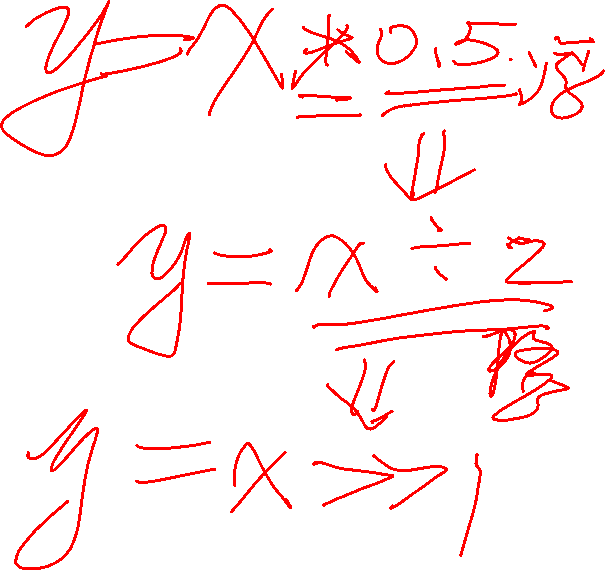 y = x * 0.5
y = x ÷ 2
y = x >> 1